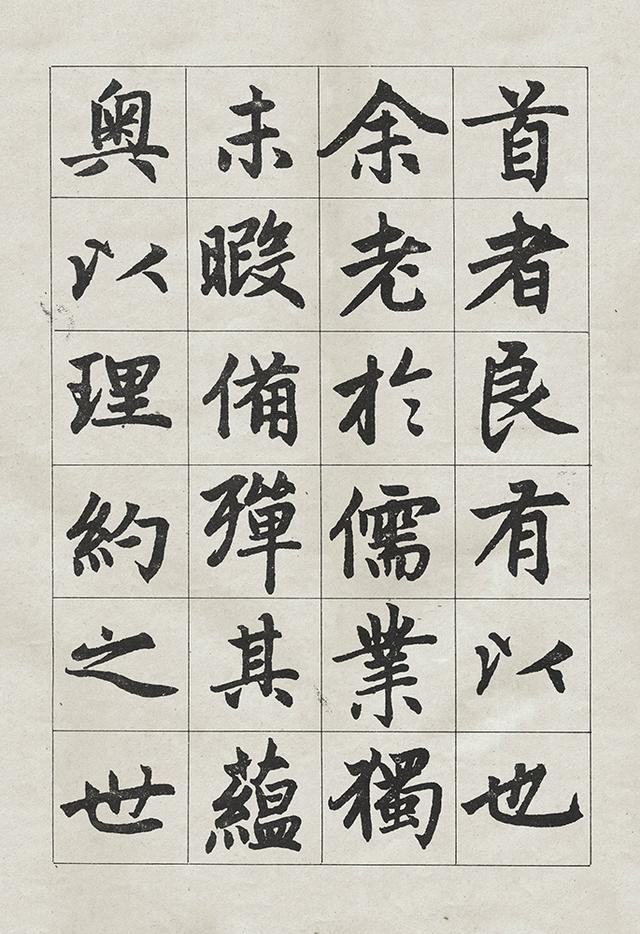 首者良有以也
余老於儒業獨
未暇備彈其蘊
奥以理約之世